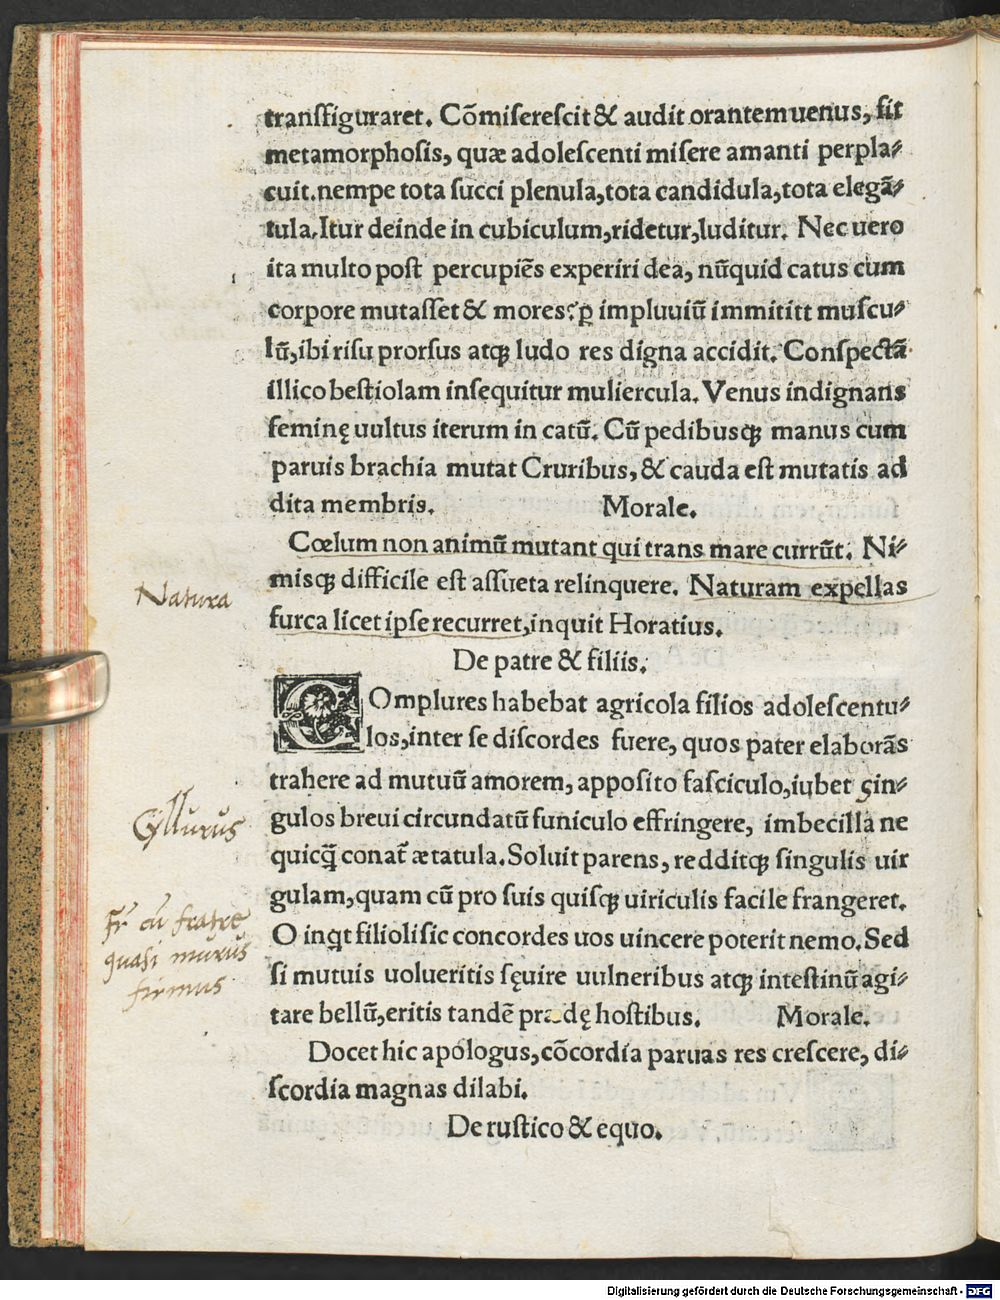 transfiguraret. Cōmiserescit & audit orantem uenus, fit
metamorphosis, quæ adolescenti misere amanti perpla⸗
cuit.nempe tota succi plenula,tota candidula,tota elegā⸗
tula.Itur deinde in cubiculum,ridetur,luditur. Nec uero
ita multo post percupiēs experiri dea, nūquid catus cum
corpore mutasset & mores? ꝑ impluuiū immititt muscu⸗
lū,ibi risu prorsus atqꝫ ludo res digna accidit. Conspectā
illico bestiolam insequitur muliercula. Venus indignans
feminę uultus iterum in catū. Cū pedibusqꝫ manus cum
paruis brachia mutat Cruribus, & cauda est mutatis ad
dita membris. Morale.
Cœlum non animū mutant qui trans mare currūt. Ni⸗
misqꝫ difficile est assueta relinquere. Naturam expellas
furca licet ipse recurret,inquit Horatius.
De patre & filiis.
COmplures habebat agricola filios adolescentu⸗
los,inter se discordes fuere, quos pater elaborās
trahere ad mutuū amorem, apposito fasciculo,iubet gin⸗
gulos breui circundatū funiculo effringere, imbecilla ne
quicq̄ conat᷑ ætatula.Soluit parens, redditqꝫ singulis uir
gulam,quam cū pro suis quisqꝫ uiriculis facile frangeret.
O inqt filioli sic concordes uos uincere poterit nemo.Sed
si mutuis uolueritis sęuire uulneribus atqꝫ intestinū agi⸗
tare bellū,eritis tandē prædę hostibus. Morale.
Docet hic apologus,cōcordia paruas res crescere, di⸗
scordia magnas dilabi.
De rustico & equo.
Natura
Cyllurus
Fr cū fratre
quasi murus
firmus
Digitalisierung gefördert durch die Deutsche Forschungsgemeinschaft - DFG